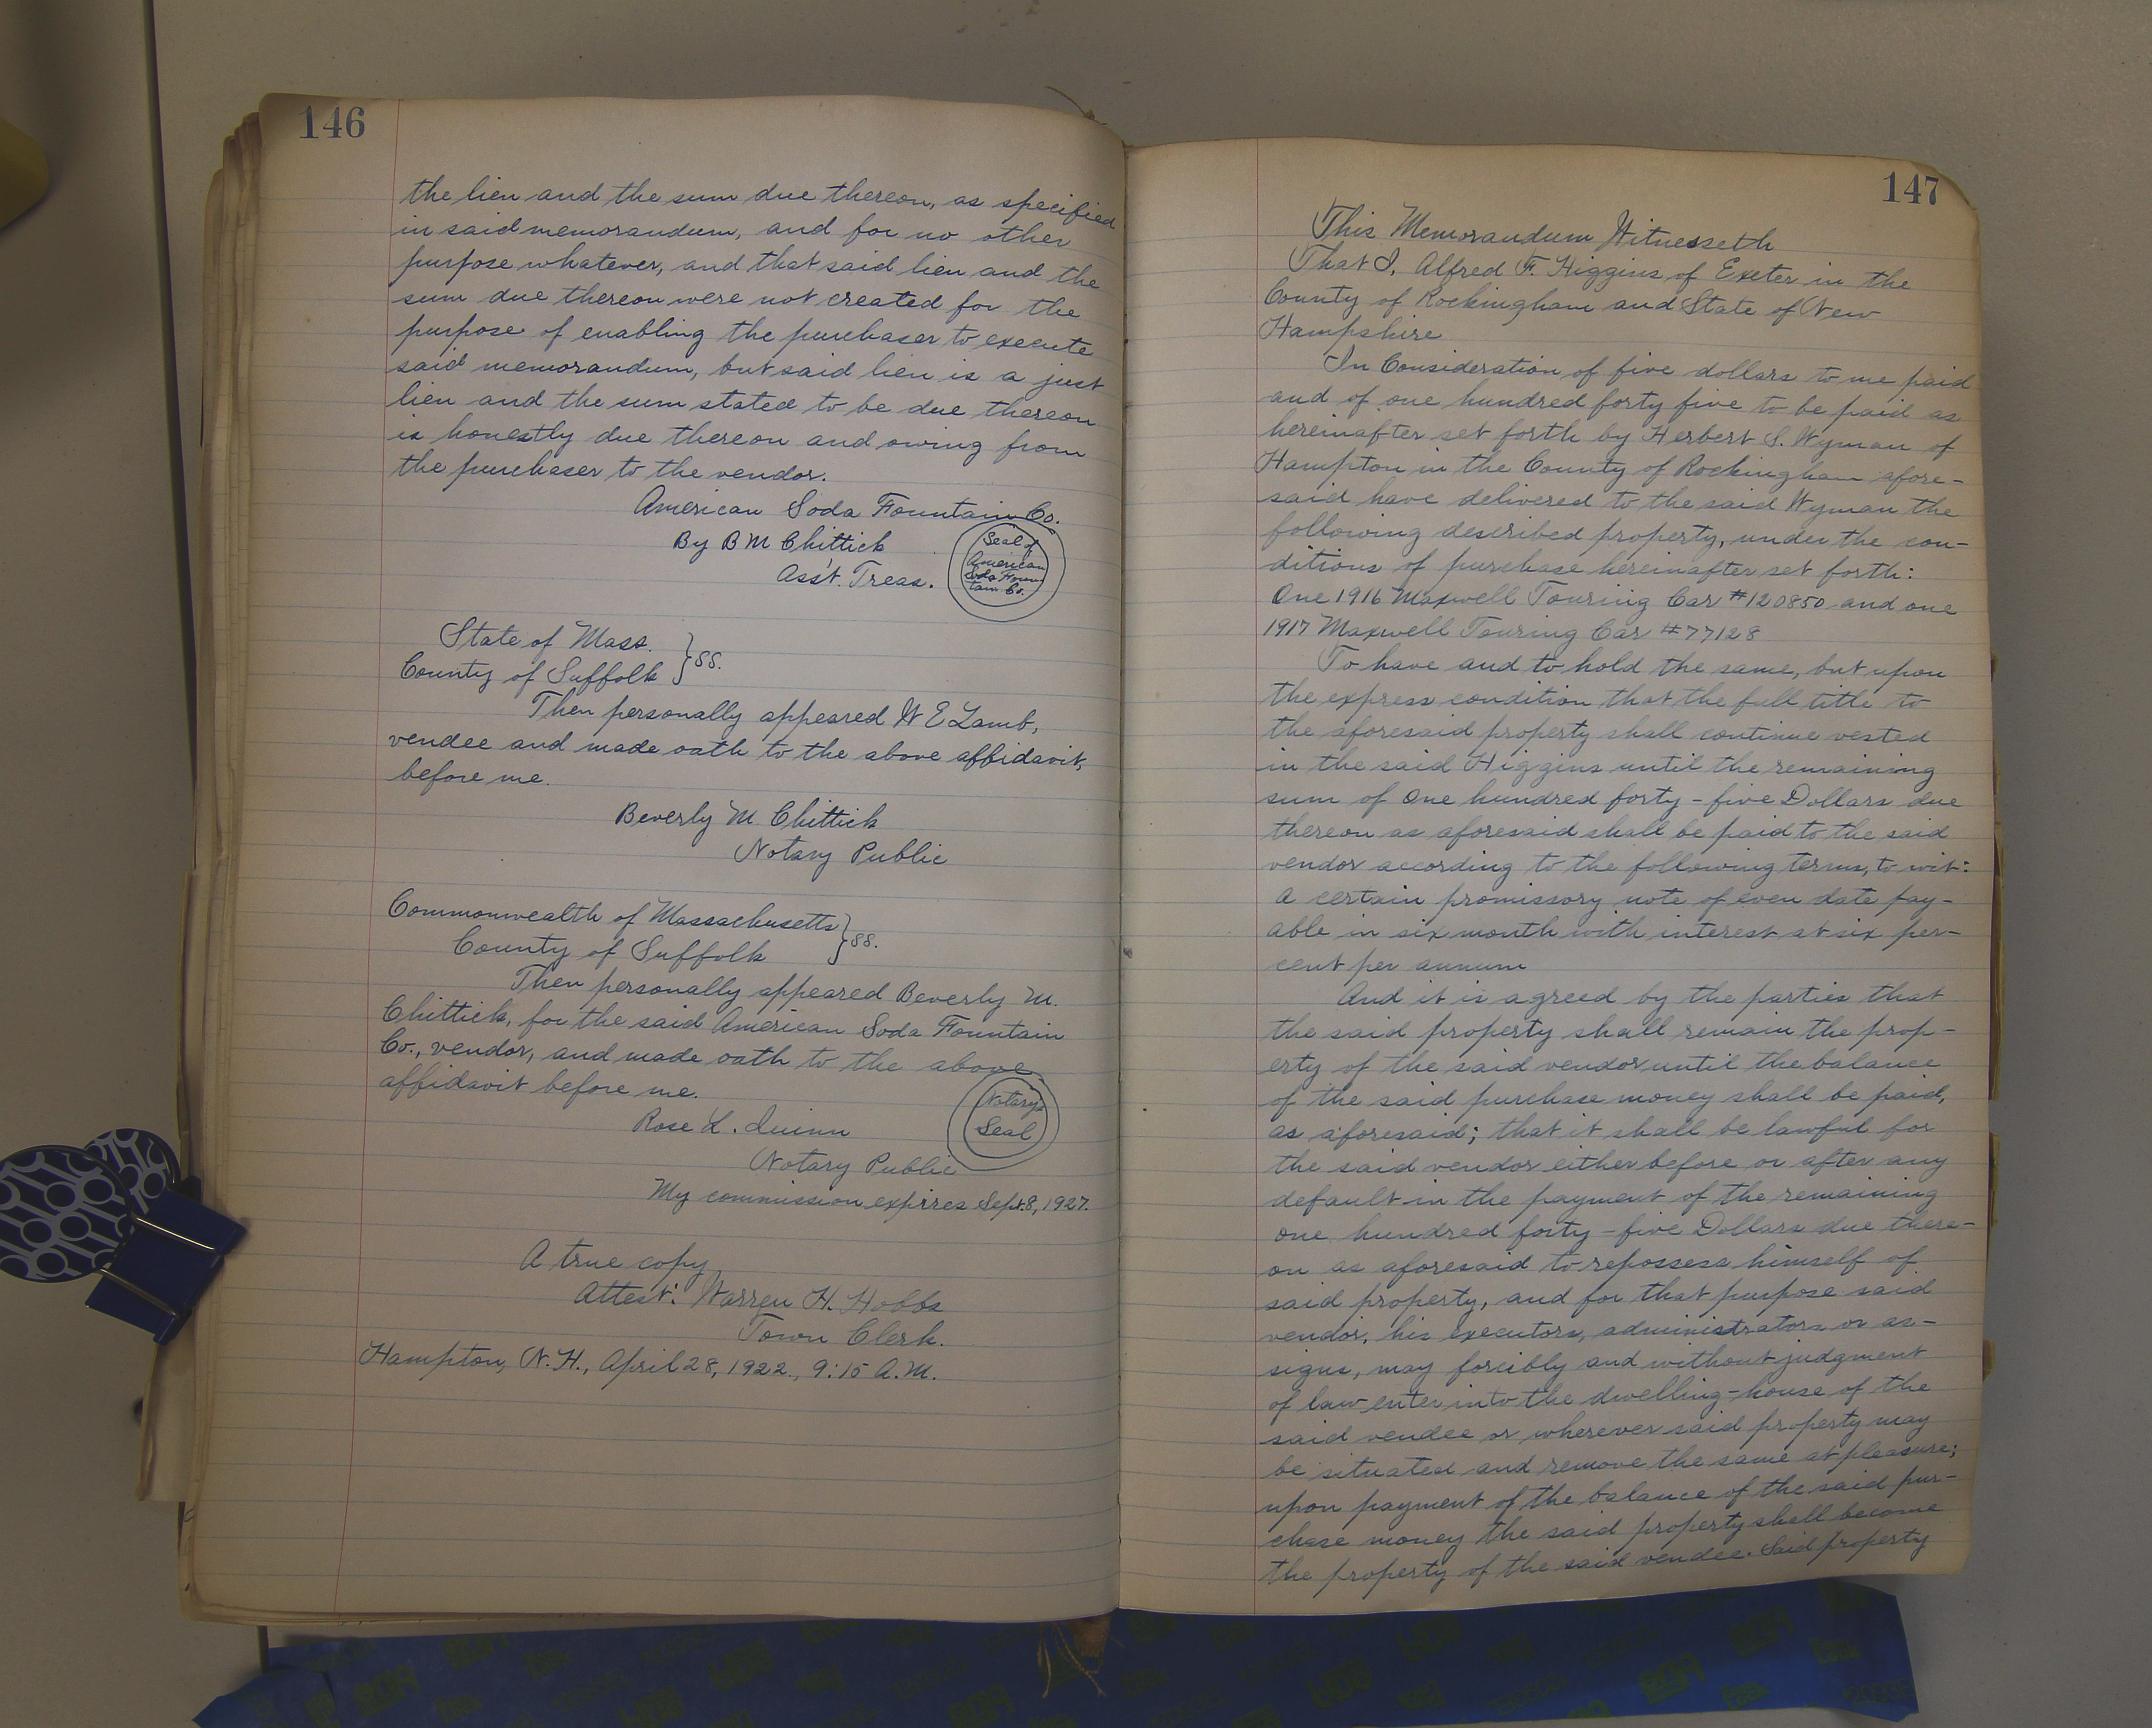 146
the lien and the sum due thereon, as specified
in said memorandum, and for no other
purpose whatever, and that said lien and the
sum due thereon were not created for the
purpose of enabling the purchaser to execute
said memorandum, but said lien is a just
lien and the sum stated to be due thereon
is honestly due thereon and owing from
the purchaser to the vendor.
American Soda Fountain Co.
By B M Chittick
Ass't. Treas.
Seal of
American
Soda Foun
tain Co.
State of Mass.
County of Suffolk } SS.
Then personally appeared W E Lamb,
vendee and made oath to the above affidavit,
before me.
Beverly M. Chittick
Notary Public
Commonwealth of Massachusetts
County of Suffolk } SS.
Then personally appeared Beverly M.
Chittick, for the said American Soda Fountain
Co., vendor, and made oath to the above
affidavit before me.
Rose L. Quinn
Notary Public
Notary's
Seal
My commission expires Sept. 8, 1927.
A true copy
Attest: Warren H. Hobbs
Town Clerk.
Hampton, N.H., April 28, 1922., 9:15 A.M.
147
This Memorandum Witnesseth
That I, Alfred F. Higgins of Exeter in the
County of Rockingham and State of New
Hampshire
In Consideration of five dollars to me paid
and of one hundred forty five to be paid as
hereinafter set forth by Herbert S. Wyman of
Hampton in the County of Rockingham afore-
said have delivered to the said Wyman the
following described property, under the con-
ditions of purchase hereinafter set forth:
One 1916 Maxwell Touring Car #120850 and one
1917 Maxwell Touring Car #77128
To have and to hold the same, but upon
the express condition that the full title to
the aforesaid property shall continue vested
in the said Higgins until the remaining
sum of One hundred forty-five Dollars due
thereon as aforesaid shall be paid to the said
vendor according to the following terms, to wit:
A certain promissory note of even date pay-
able in six month with interest at six per-
cent per annum
And it is agreed by the parties that
the said property shall remain the prop-
erty of the said vendor until the balance
of the said purchase money shall be paid,
as aforesaid; that it shall be lawful for
the said vendor either before or after any
default in the payment of the remaining
one hundred forty-five Dollars due there-
on as aforesaid to repossess himself of
said property, and for that purpose said
vendor, his executors, administrators or as-
signs, may forcibly and without judgment
of law enter into the dwelling-house of the
said vendee or wherever said property may
be situated and remove the same at pleasure;
upon payment of the balance of the said pur-
chase money the said property shall become
the property of the said vendee. Said property